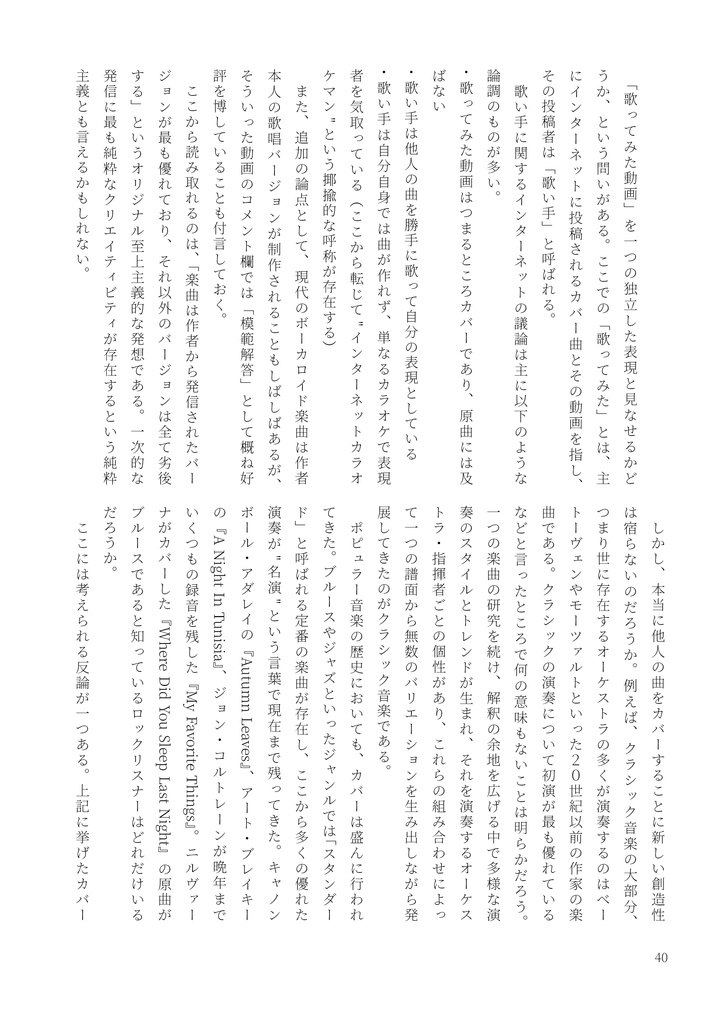 「歌ってみた動画」を一つの独立した表現と見なせるかど
うか、という問いがある。ここでの「歌ってみた」とは、主
にインターネットに投稿されるカバー曲とその動画を指し、
その投稿者は「歌い手」と呼ばれる。
歌い手に関するインターネットの議論は主に以下のような
論調のものが多い。
・歌ってみた動画はつまるところカバーであり、原曲には及
ばない
・歌い手は他人の曲を勝手に歌って自分の表現としている
・歌い手は自分自身では曲が作れず、単なるカラオケで表現
者を気取っている（ここから転じて〝インターネットカラオ
ケマン〟という揶揄的な呼称が存在する）
また、追加の論点として、現代のボーカロイド楽曲は作者
本人の歌唱バージョンが制作されることもしばしばあるが、
そういった動画のコメント欄では「模範解答」として概ね好
評を博していることも付言しておく。
ここから読み取れるのは、「楽曲は作者から発信されたバー
ジョンが最も優れており、それ以外のバージョンは全て劣後
する」というオリジナル至上主義的な発想である。一次的な
発信に最も純粋なクリエイティビティが存在するという純粋
主義とも言えるかもしれない。
しかし、本当に他人の曲をカバーすることに新しい創造性
は宿らないのだろうか。例えば、クラシック音楽の大部分、
つまり世に存在するオーケストラの多くが演奏するのはベー
トーヴェンやモーツァルトといった２０世紀以前の作家の楽
曲である。クラシックの演奏について初演が最も優れている
などと言ったところで何の意味もないことは明らかだろう。
一つの楽曲の研究を続け、解釈の余地を広げる中で多様な演
奏のスタイルとトレンドが生まれ、それを演奏するオーケス
トラ・指揮者ごとの個性があり、これらの組み合わせによっ
て一つの譜面から無数のバリエーションを生み出しながら発
展してきたのがクラシック音楽である。
ポピュラー音楽の歴史においても、カバーは盛んに行われ
てきた。ブルースやジャズといったジャンルでは「スタンダー
ド」と呼ばれる定番の楽曲が存在し、ここから多くの優れた
演奏が〝名演〟という言葉で現在まで残ってきた。キャノン
ボール・アダレイの『Autumn Leaves』、アート・ブレイキー
の『A Night In Tunisia』、ジョン・コルトレーンが晩年まで
いくつもの録音を残した『My Favorite Things』。ニルヴァー
ナがカバーした『Where Did You Sleep Last Night』の原曲が
ブルースであると知っているロックリスナーはどれだけいる
だろうか。
ここには考えられる反論が一つある。上記に挙げたカバー
40